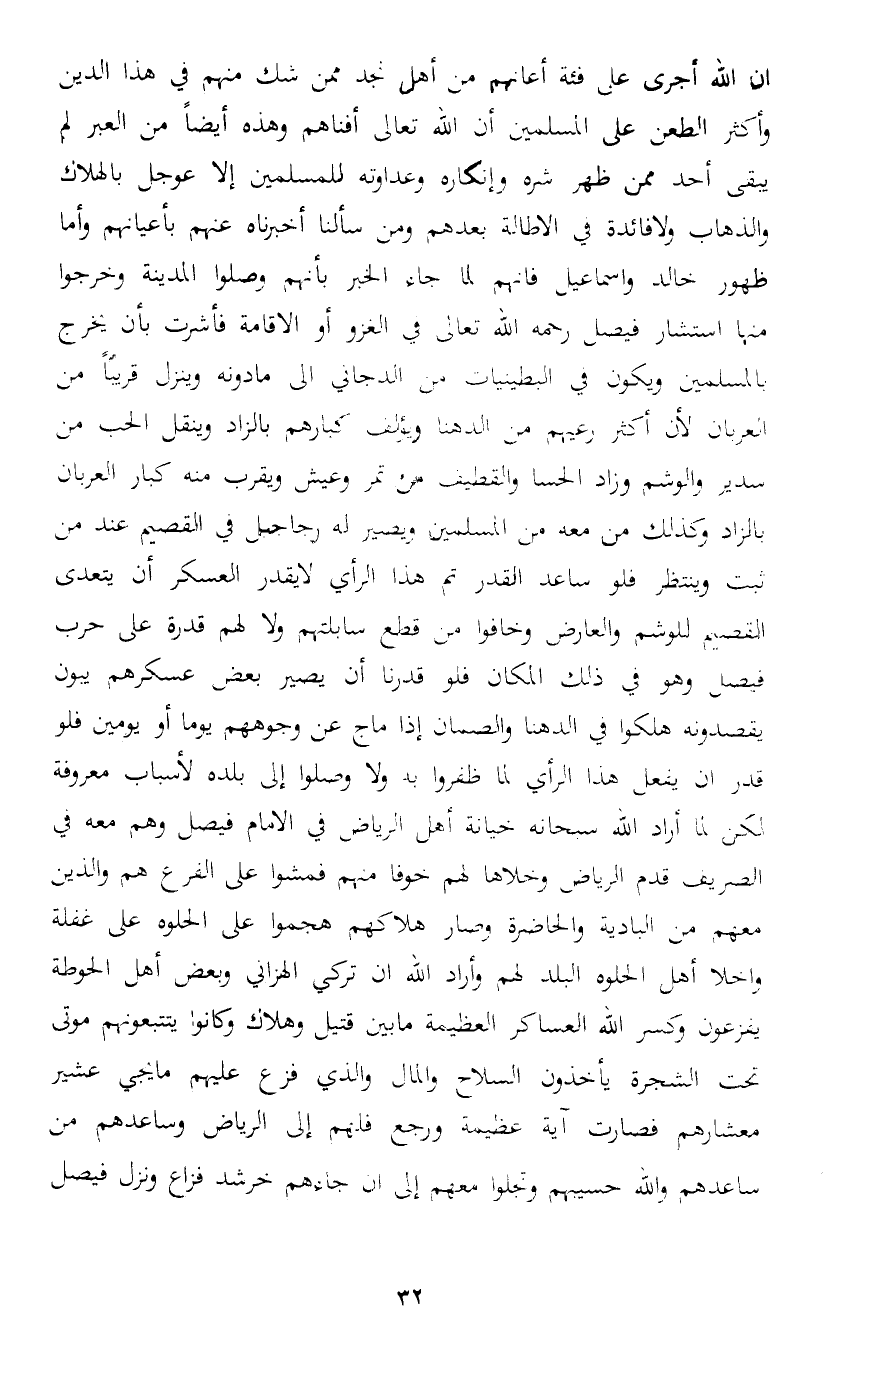 ان الله أجرى على فئة أعانهم من أهل نجد ممن شك منهم في هذا الدين
وأكثر الطعن على المسلمين أن الله تعالى أفناهم وهذه أيضاً من العبر لم
يبقى أحد ممن ظهر شره وإنكاره وعداوته للمسلمين إلا عوجل بالهلاك
والذهاب ولافائدة في الاطالة بعدهم ومن سألنا أخبرناه عنهم بأعيانهم وأما
ظهور خالد واسماعيل فانهم لما جاء الخبر بأنهم وصلوا المدينة وخرجوا
منها استشار فيصل رحمه الله تعالى في الغزو أو الاقامة فأشرت بأن يخرج
بالمسلمين ويكون في البطينيات من الدجاني الى مادونه وينزل قريباً من
العربان لأن أكثر رعيهم من الدهنا ويؤلف كبارهم بالزاد وينقل الحب من
سدير والوشم وزاد الحسا والقطيف من تمر وعيش ويقرب منه كبار العربان
بالزاد وكذلك من معه من المسلمين ويصير له رجاجيل في القصيم عند من
ثبت وينتظر فلو ساعد القدر تم هذا الرأي لايقدر العسكر أن يتعدى
القصيم للوشم والعارض وخافوا من قطع سابلتهم ولا لهم قدرة على حرب
فيصل وهو في ذلك المكان فلو قدرنا أن يصير بعض عسكرهم يبون
يقصدونه هلكوا في الدهنا والصمان إذا ماج عن وجوههم يوما أو يومين فلو
قدر ان يفعل هذا الرأي لما ظفروا به ولا وصلوا إلى بلده لأسباب معروفة
لكن لما أراد الله سبحانه خيانة أهل الرياض في الامام فيصل وهم معه في
الصريف قدم الرياض وخلاها لهم خوفا منهم فمشوا على الفرع هم والذين
معهم من البادية والحاضرة وصار هلاكهم هجموا على الحلوه على غفلة
واخلا أهل الحلوه البلد لهم وأراد الله ان تركي الهزاني وبعض أهل الحوطة
يفزعون وكسر الله العساكر العظيمة مابين قتيل وهلاك وكانوا يتتبعونهم موتى
تحت الشجرة يأخذون السلاح والمال والذي فزع عليهم مايجي عشير
معشارهم فصارت آية عظيمة ورجع فلهم إلى الرياض وساعدهم من
ساعدهم والله حسيبهم وتجلوا معهم إلى ان جاءهم خرشد فزاع ونزل فيصل
٣٢